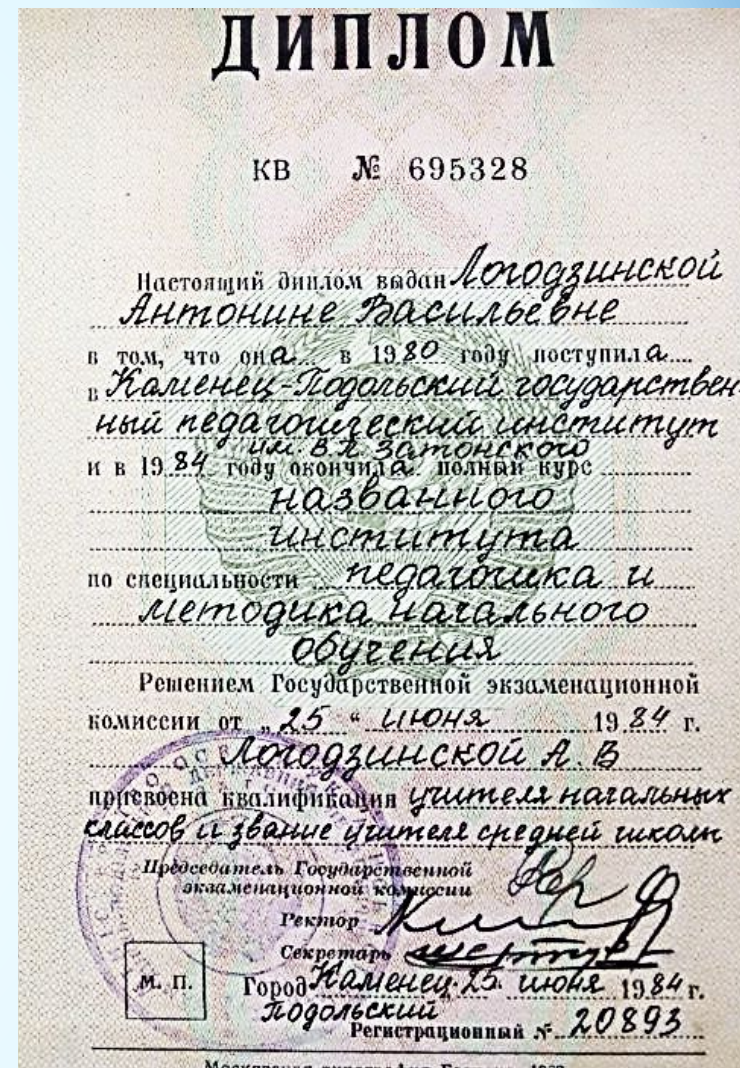 ДИПЛОМ
КВ № 695328
Настоящий диплом выдан Логодзинской
Антонине Васильевне
в том, что она в 1980 году поступила
в Каменец-Подольский государствен-
ный педагогический институт
им. В П Затонского
и в 1984 году окончила полный курс
названного
института
по специальности педагогика и
методика начального
обучения
Решением Государственной экзаменационной
комиссии от „25“ июня 1984 г.
Логодзинской А. В
присвоена квалификация учителя начальных
классов и звание учителя средней школы
Председатель Государственной
экзаменационной комиссии
Ректор
Секретарь
М. П.
Город Каменец- 25 июня 1984 г.
Подольский
Регистрационный № 20893
Московская типография Гознака.